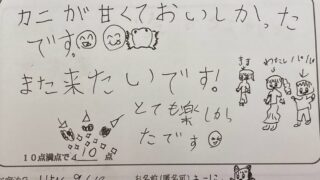 カニが甘くておいしかった
です。
また来たいです!
まま わたし パパ
とても楽しかっ
たです
10点満点で 10 点
お名前(匿名可)